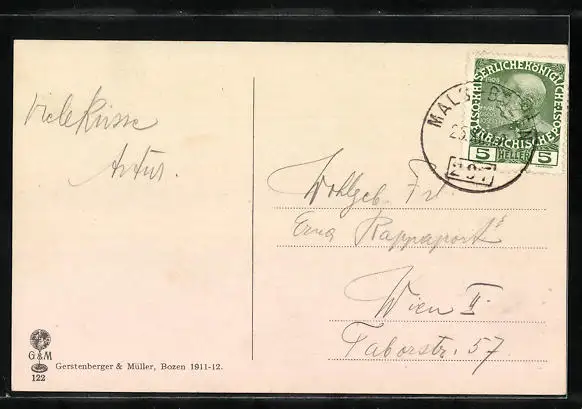 Viele Küsse
Artur.
Wohlgeb. Frl
Erna Rappaport
Wien II.
Taborstr. 57.
KAISERLICHE KÖNIGLICHE
ÖSTERREICHISCHE
5 HELLER 5
MALS-BOZEN
G&M
122
Gerstenberger & Müller, Bozen 1911-12.